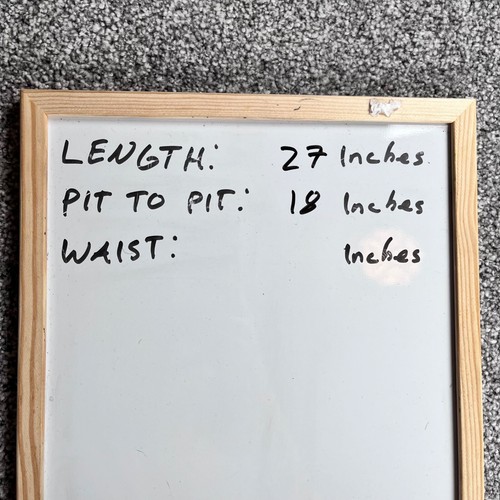 LENGTH: 27 Inches
PIT TO PIT: 18 Inches
WAIST: Inches